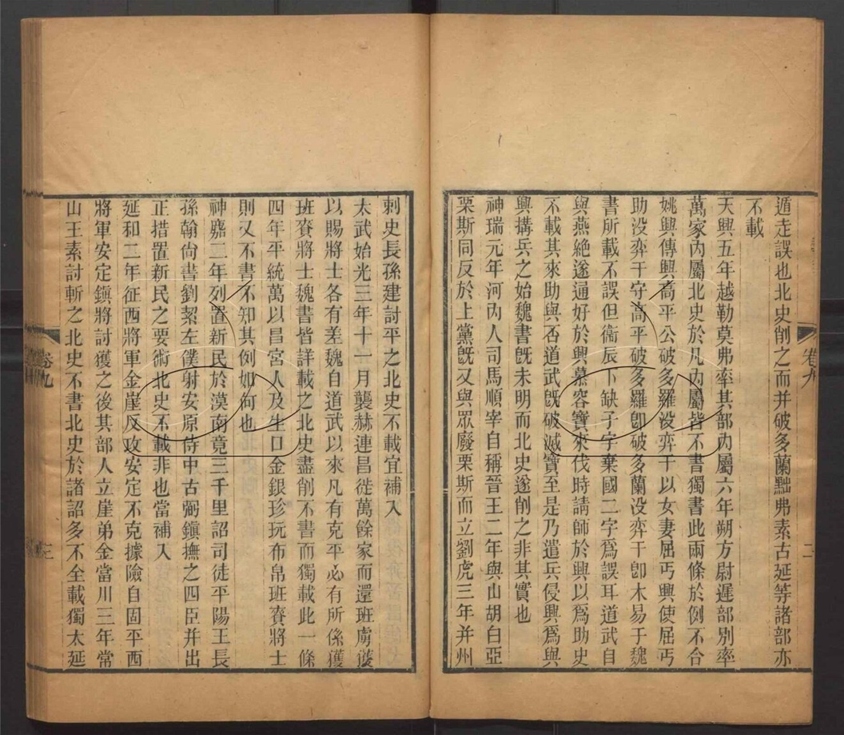 遁走誤也北史削之而并破多蘭黜弗素古延等諸部亦
不載
天興五年越勒莫弗率其部內屬六年朔方尉遲部別率
萬家內屬北史於凡內屬皆不書獨書此兩條於例不合
姚興傳興高平公破多羅沒弈干以女妻屈丐興使屈丐
助沒弈干守高平破多羅卽破多蘭沒弈干卽木易于魏
書所載不誤但衞辰下缺子字棄國二字爲誤耳道武自
與燕絶遂通好於興慕容寶來伐時請師於興以爲助史
不載其來助與否道武旣破滅寶至是乃遣兵侵興爲與
興搆兵之始魏書旣未明而北史遂削之非其實也
神瑞元年河內人司馬順宰自稱晉王二年與山胡白亞
栗斯同反於上黨旣又與眾廢栗斯而立劉虎三年并州
卷九
二
刺史長孫建討平之北史不載宜補入
太武始光三年十一月襲赫連昌徙萬餘家而還班虜獲
以賜將士各有差魏自道武以來凡有克平必有所係獲
班賚將士魏書皆詳載之北史盡削不書而獨載此一條
四年平統萬以昌宮人及生口金銀珍玩布帛班賚將士
則又不書不知其例如何也
神䴥二年列置新民於漠南竟三千里詔司徒平陽王長
孫翰尙書劉絜左僕射安原侍中古弼鎭撫之四臣并出
正措置新民之要術北史不載非也當補入
延和二年征西將軍金崖反攻安定不克據險自固平西
將軍安定鎭將討獲之後其部人立崖弟金當川三年常
山王素討斬之北史不書北史於諸詔多不全載獨太延
卷九
三